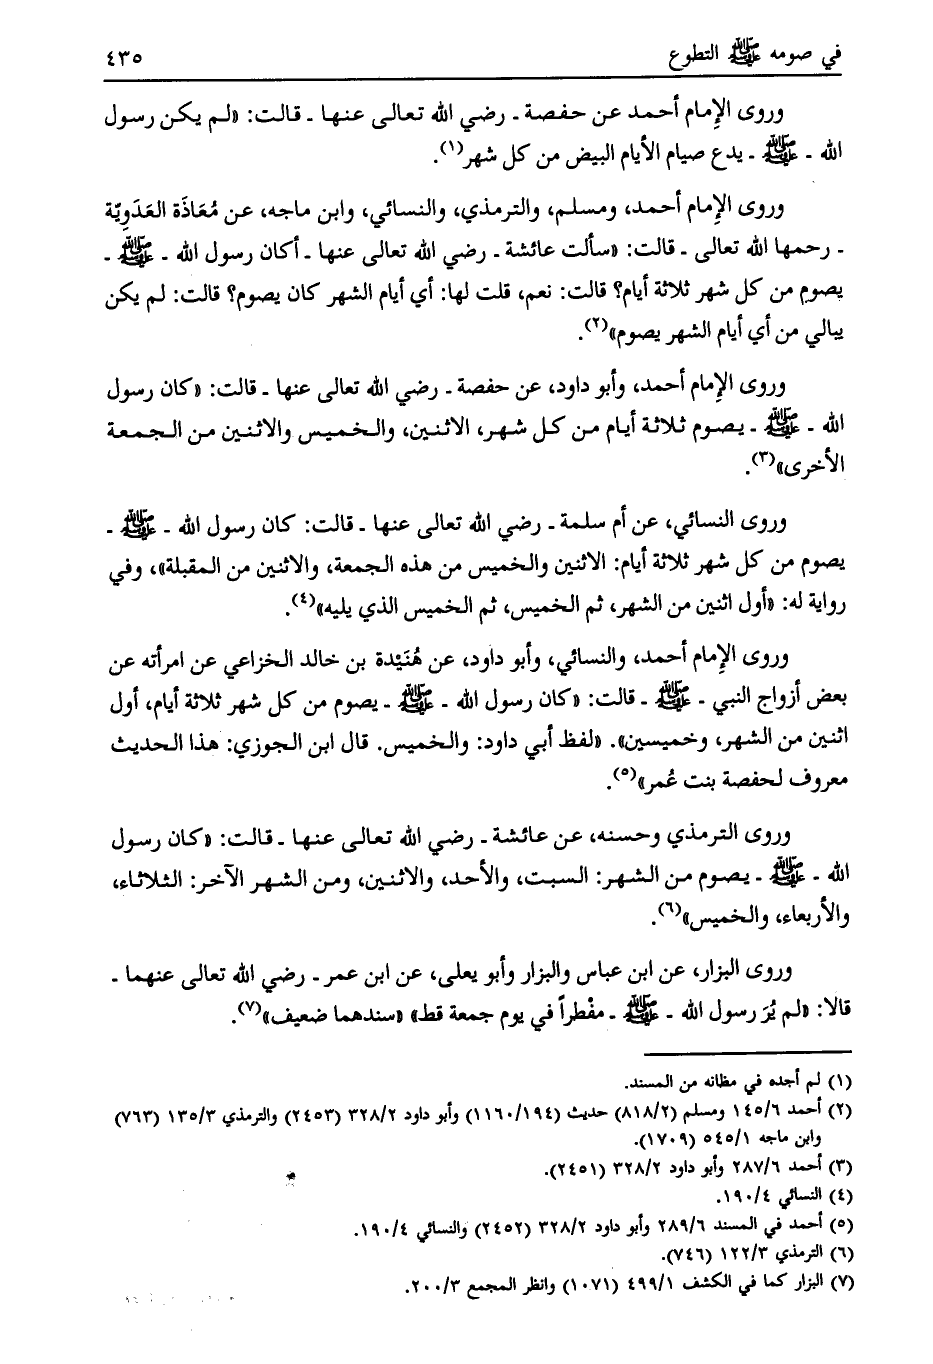 في صومه ﷺ التطوع ٤٣٥
وروى الإمام أحمد عن حفصة ـ رضي الله تعالى عنها ـ قالت: «لم يكن رسول
الله ـ ﷺ ـ يدع صيام الأيام البيض من كل شهر(١).
وروى الإمام أحمد، ومسلم، والترمذي، والنسائي، وابن ماجه، عن مُعَاذَة العَدَوِيّة
ـ رحمها الله تعالى ـ قالت: «سألت عائشة ـ رضي الله تعالى عنها ـ أكان رسول الله ـ ﷺ ـ
يصوم من كل شهر ثلاثة أيام؟ قالت: نعم، قلت لها: أي أيام الشهر كان يصوم؟ قالت: لم يكن
يبالي من أي أيام الشهر يصوم»(٢).
وروى الإمام أحمد، وأبو داود، عن حفصة ـ رضي الله تعالى عنها ـ قالت: «كان رسول
الله ـ ﷺ ـ يصوم ثلاثة أيام من كل شهر، الاثنين، والخميس والاثنين من الجمعة
الأخرى»(٣).
وروى النسائي، عن أم سلمة ـ رضي الله تعالى عنها ـ قالت: كان رسول الله ـ ﷺ ـ
يصوم من كل شهر ثلاثة أيام: الاثنين والخميس من هذه الجمعة، والاثنين من المقبلة»، وفي
رواية له: «أول اثنين من الشهر، ثم الخميس، ثم الخميس الذي يليه»(٤).
وروى الإمام أحمد، والنسائي، وأبو داود، عن هُنَيْدة بن خالد الخزاعي عن امرأته عن
بعض أزواج النبي ـ ﷺ ـ قالت: «كان رسول الله ـ ﷺ ـ يصوم من كل شهر ثلاثة أيام، أول
اثنين من الشهر، وخميسين». «لفظ أبي داود: والخميس. قال ابن الجوزي: هذا الحديث
معروف لحفصة بنت عُمر»(٥).
وروى الترمذي وحسنه، عن عائشة ـ رضي الله تعالى عنها ـ قالت: «كان رسول
الله ـ ﷺ ـ يصوم من الشهر: السبت، والأحد، والاثنين، ومن الشهر الآخر: الثلاثاء،
والأربعاء، والخميس»(٦).
وروى البزار، عن ابن عباس والبزار وأبو يعلى، عن ابن عمر ـ رضي الله تعالى عنهما ـ
قالا: «لم يُرَ رسول الله ـ ﷺ ـ مفْطراً في يوم جمعة قط» «سندهما ضعيف»(٧).
(١) لم أجده في مظانه من المسند.
(٢) أحمد ١٤٥/٦ ومسلم (٨١٨/٢) حديث (١١٦٠/١٩٤) وأبو داود ٣٢٨/٢ (٢٤٥٣) والترمذي ١٣٥/٣ (٧٦٣)
وابن ماجه ٥٤٥/١ (١٧٠٩).
(٣) أحمد ٢٨٧/٦ وأبو داود ٣٢٨/٢ (٢٤٥١).
(٤) النسائي ١٩٠/٤.
(٥) أحمد في المسند ٢٨٩/٦ وأبو داود ٣٢٨/٢ (٢٤٥٢) والنسائي ١٩٠/٤.
(٦) الترمذي ١٢٢/٣ (٧٤٦).
(٧) البزار كما في الكشف ٤٩٩/١ (١٠٧١) وانظر المجمع ٢٠٠/٣.